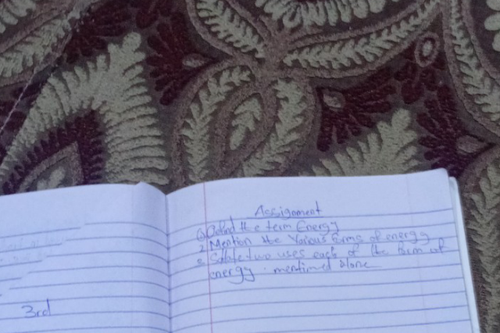 Assignment
the term Energy
2 Mention the Various forms of energy
two uses each of the form of
energy mentioned
3rd